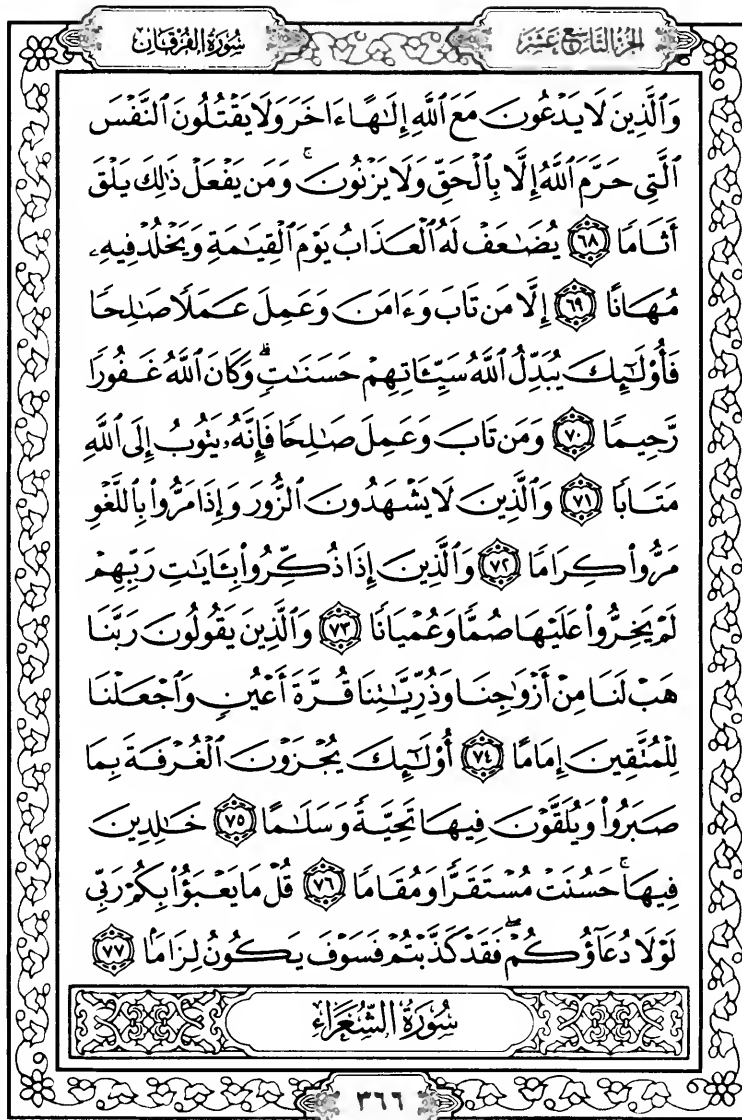 الجزء التاسع عشر
سورة الفرقان
وَٱلَّذِينَ لَا يَدْعُونَ مَعَ ٱللَّهِ إِلَٰهًا ءَاخَرَ وَلَا يَقْتُلُونَ ٱلنَّفْسَ
ٱلَّتِى حَرَّمَ ٱللَّهُ إِلَّا بِٱلْحَقِّ وَلَا يَزْنُونَ ۚ وَمَن يَفْعَلْ ذَٰلِكَ يَلْقَ
أَثَامًا ٦٨ يُضَٰعَفْ لَهُ ٱلْعَذَابُ يَوْمَ ٱلْقِيَٰمَةِ وَيَخْلُدْ فِيهِۦ
مُهَانًا ٦٩ إِلَّا مَن تَابَ وَءَامَنَ وَعَمِلَ عَمَلًا صَٰلِحًا
فَأُو۟لَٰٓئِكَ يُبَدِّلُ ٱللَّهُ سَيِّـَٔاتِهِمْ حَسَنَٰتٍ ۗ وَكَانَ ٱللَّهُ غَفُورًا
رَّحِيمًا ٧٠ وَمَن تَابَ وَعَمِلَ صَٰلِحًا فَإِنَّهُۥ يَتُوبُ إِلَى ٱللَّهِ
مَتَابًا ٧١ وَٱلَّذِينَ لَا يَشْهَدُونَ ٱلزُّورَ وَإِذَا مَرُّوا۟ بِٱللَّغْوِ
مَرُّوا۟ كِرَامًا ٧٢ وَٱلَّذِينَ إِذَا ذُكِّرُوا۟ بِـَٔايَٰتِ رَبِّهِمْ
لَمْ يَخِرُّوا۟ عَلَيْهَا صُمًّا وَعُمْيَانًا ٧٣ وَٱلَّذِينَ يَقُولُونَ رَبَّنَا
هَبْ لَنَا مِنْ أَزْوَٰجِنَا وَذُرِّيَّٰتِنَا قُرَّةَ أَعْيُنٍ وَٱجْعَلْنَا
لِلْمُتَّقِينَ إِمَامًا ٧٤ أُو۟لَٰٓئِكَ يُجْزَوْنَ ٱلْغُرْفَةَ بِمَا
صَبَرُوا۟ وَيُلَقَّوْنَ فِيهَا تَحِيَّةً وَسَلَٰمًا ٧٥ خَٰلِدِينَ
فِيهَا ۚ حَسُنَتْ مُسْتَقَرًّا وَمُقَامًا ٧٦ قُلْ مَا يَعْبَؤُا۟ بِكُمْ رَبِّى
لَوْلَا دُعَآؤُكُمْ ۖ فَقَدْ كَذَّبْتُمْ فَسَوْفَ يَكُونُ لِزَامًۢا ٧٧
سُورَةُ الشُّعَرَاءِ
٣٦٦